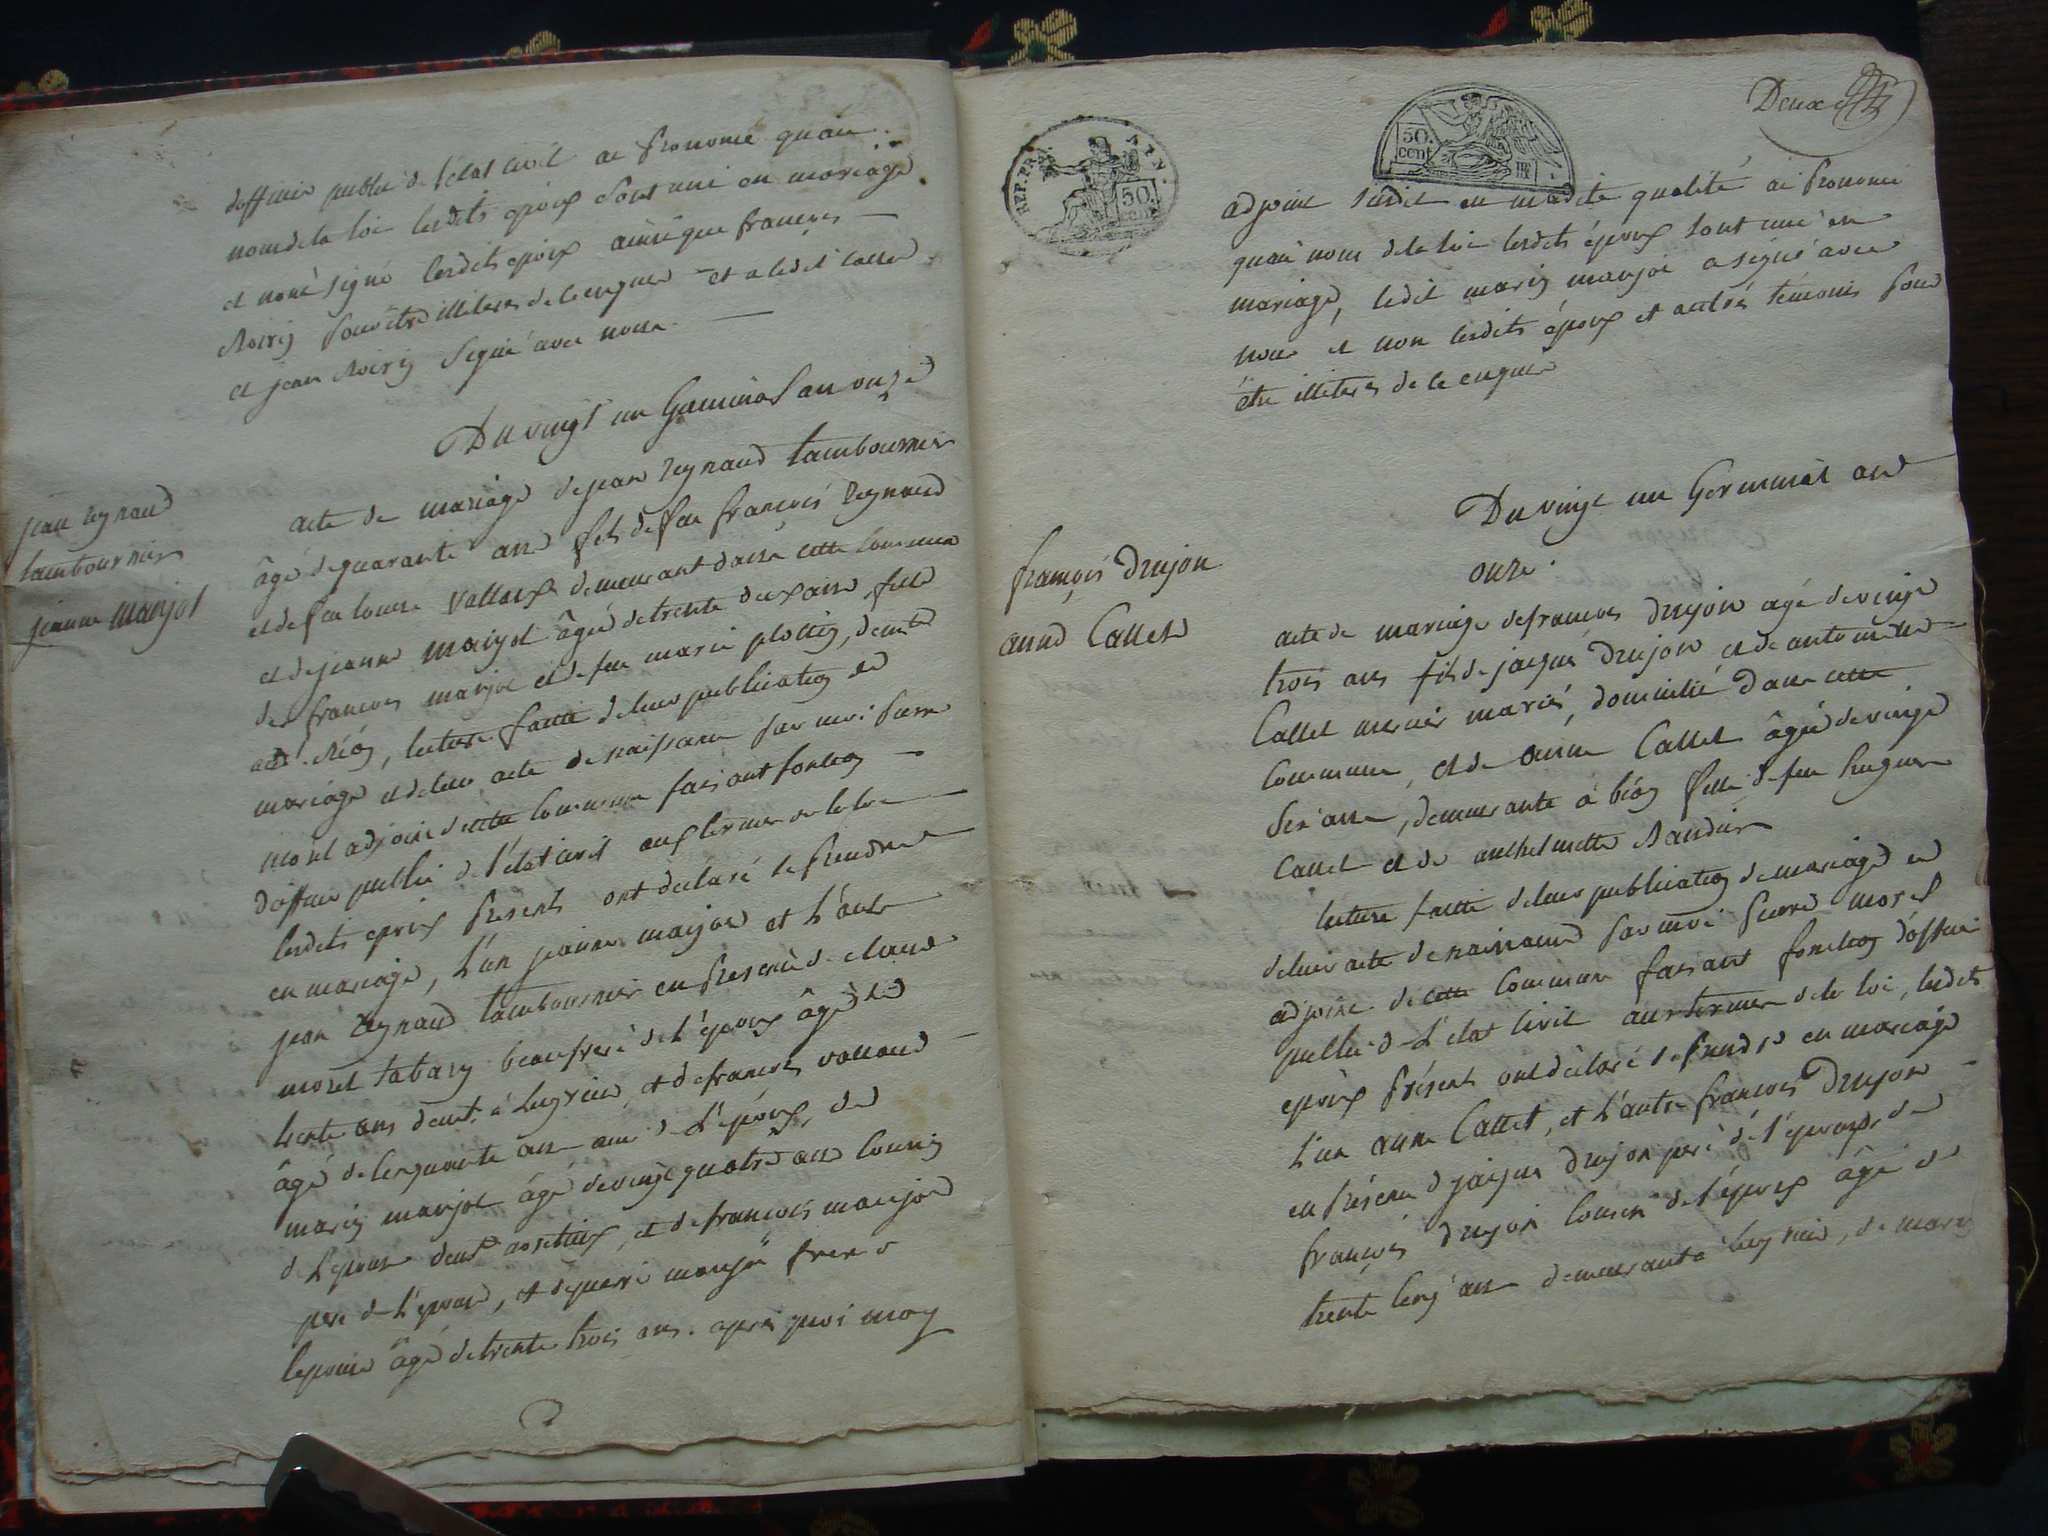 d'officier public de l'état civil ai prononcé qu'au
nom de la loi lesdits époux sont uni en mariage
et nont signé lesdits epoux ainsi que françois
pour être illiteres de ce enquis et a ledit
et jean signé avec nous
Du vingt un Germinal an onze
jean reynaud
tambournier
jeanne marjol
acte de mariage de jean reynaud tambournier
âgé de quarante ans fils de feu françois reynaud
et de feu louise vallouf demeurant dans cette commune
et de jeanne marjol âgée de trente deux ans fille
de françois marjol et de feu marie plottin, demt
lecture faitte de leur publication de
mariage et de leur acte de naissance par moi pierre
morel adjoint de cette commune faisant fonction
d'officier public de l'état civil aux termes de la loi
lesdits epoux présents ont déclaré se prendre
en mariage, l'un jeanne marjol et l'autre
jean reynaud tambournier en présence de claude
morel tabary beaufrere de l'époux âgé de
trente ans demt. à lugrin, et de françois
âgé de cinquante ans ami de l'époux, de
marin marjol âgé de vingt quatre ans cousin
de l'epouse et de françois marjol
pere de l'epouse, et de pierre marjol frere de
lepouse âgé de trente trois ans. après quoi moy
Deux
REP. FRA.
50.
cen
50.
cen
RF
adjoint susdit en madite qualité ai prononcé
quau nom de la loi lesdits époux sont uni en
mariage, ledit marin marjol a signé avec
nous et non lesdits époux et autres témoins pour
être illiteres de ce enquis
Du vingt un Germinal an
onze.
françois Drujon
anne Callet
acte de mariage de françois drujon agé de vingt
trois ans fils de jacques Drujon et de antoinette
Callet mariés, domicilié dans cette
commune, et de anne Callet âgée de vingt
six ans, demeurante à fille de feu hugue
Callet et de anthelmette
lecture faitte de leur publication de mariage et
de leur acte de naissance par moi pierre morel
adjoint de cette commune faisant fonction d'officier
public de l'état civil aux termes de la loi, lesdits
epoux présents ont déclaré se prendre en mariage
l'un anne Callet, et l'autre françois Drujon
en présence de jacques drujon pere de l'epoux, de
françois drujon cousin de l'époux âgé de
trente cinq ans demeurant à lugrin, de marin